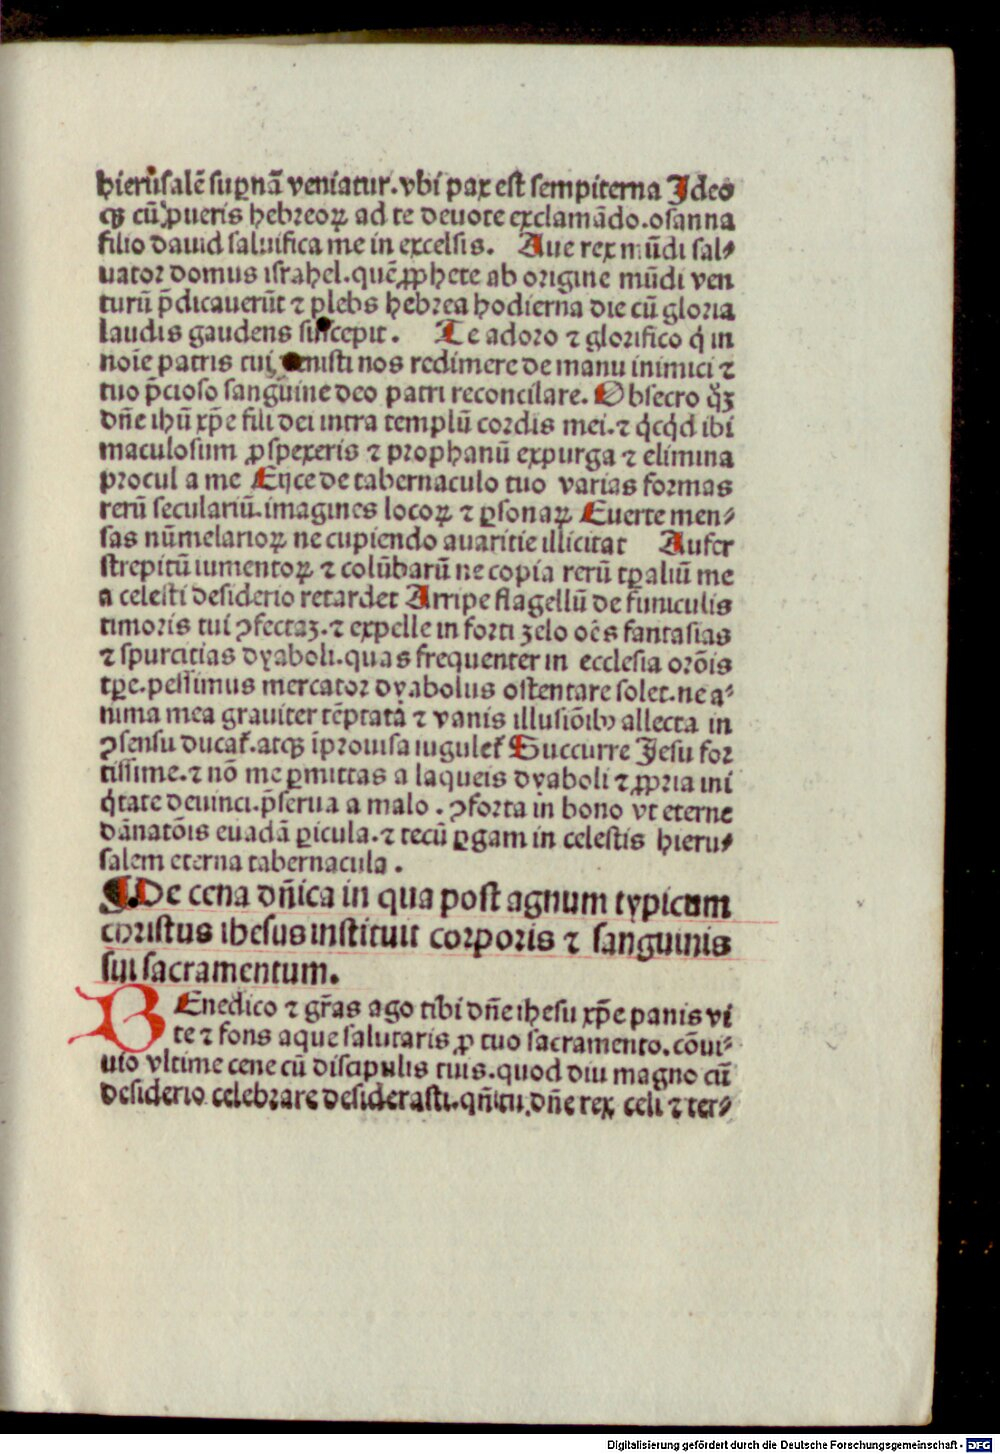 hierusalē suꝑnā veniatur. vbi pax est sempiterna Ideo
qꝫ cū pueris hebreoꝝ ad te deuote exclamādo. osanna
filio dauid saluifica me in excelsis. Aue rex mūdi sal⸗
uator domus israhel. quē ꝓphete ab origine mūdi ven
turū p̄dicauerūt ⁊ plebs hebrea hodierna die cū gloria
laudis gaudens suscepit. Te adoro ⁊ glorifico q̇ in
noīe patris tui venisti nos redimere de manu inimici ⁊
tuo p̄cioso sanguine deo patri reconciliare. Obsecro qͣꝫ
dn̄e ihū xp̄e fili dei intra templū cordis mei. ⁊ q̇cq̇d ibi
maculosum ꝓspexeris ⁊ prophanū expurga ⁊ elimina
procul a me Eijce de tabernaculo tuo varias formas
rerū seculariū. imagines locoꝝ ⁊ ꝑsonaꝝ Euerte men⸗
sas nūmelarioꝝ ne cupiendo auaritie illicitat Aufer
strepitū iumentoꝝ ⁊ colūbarū ne copia rerū tꝑaliū me
a celesti desiderio retardet Arripe flagellū de funiculis
timoris tui ꝯfectaꝫ. ⁊ expelle in forti zelo oēs fantasias
⁊ spurcitias dyaboli. quas frequenter in ecclesia orōis
tꝑe. pessimus mercator dyabolus ostentare solet. ne a⸗
nima mea grauiter tēptata ⁊ vanis illusiōibꝰ allecta in
ꝯsensu ducat̄. atqꝫ īprouisa iugulet̄ Succurre Jesu for
tissime. ⁊ nō me ꝑmittas a laqueis dyaboli ⁊ ꝓpria ini
q̇tate deuinci. p̄serua a malo. ꝯforta in bono vt eterne
dānatōis euadā ꝑicula. ⁊ tecū ꝑgam in celestis hieru⸗
salem eterna tabernacula.
¶ De cena dn̄ica in qua post agnum typicum
christus ihesus instituit corporis ⁊ sanguinis
sui sacramentum.
BEnedico ⁊ gr̄as ago tibi dn̄e ihesu xp̄e panis vi
te ⁊ fons aque salutaris ꝓ tuo sacramento. cōui⸗
uio vltime cene cū discipulis tuis. quod diu magno cū
desiderio celebrare desiderasti. qn̄ tu dn̄e rex celi ⁊ ter⸗
Digitalisierung gefördert durch die Deutsche Forschungsgemeinschaft - DFG